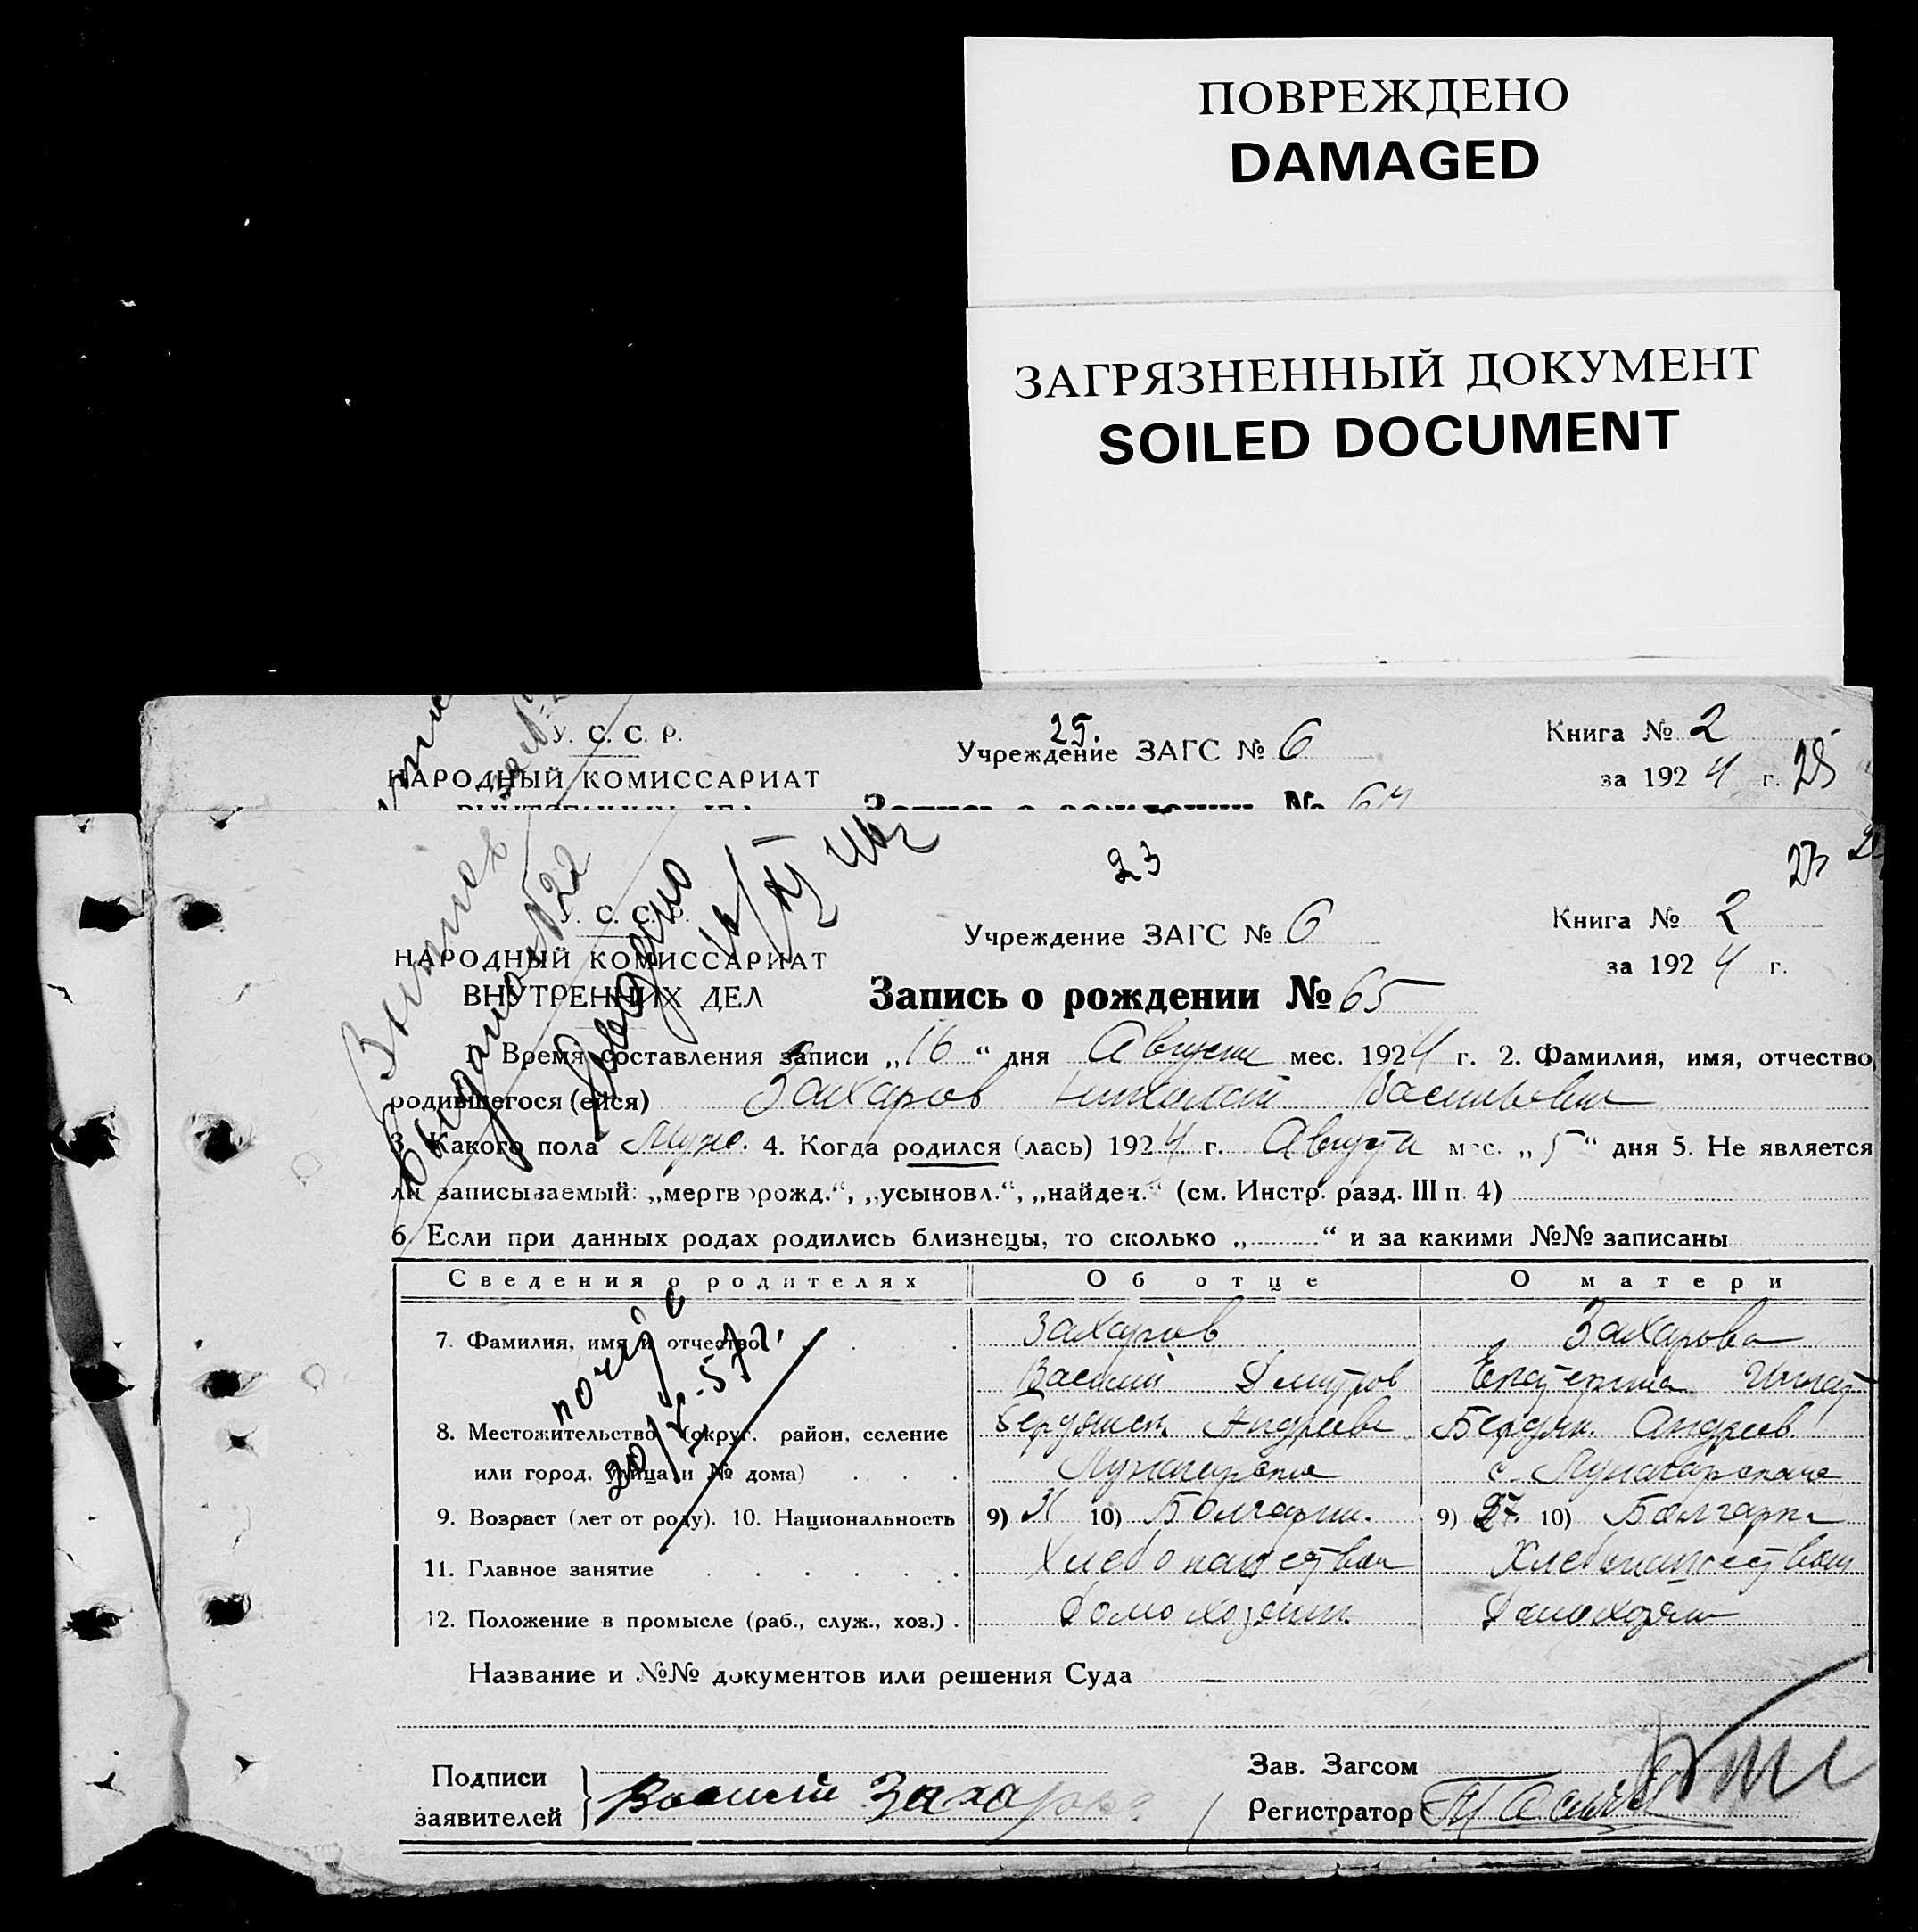 ПОВРЕЖДЕНО
DAMAGED
ЗАГРЯЗНЕННЫЙ ДОКУМЕНТ
SOILED DOCUMENT
У. С. С. Р.
НАРОДНЫЙ КОМИССАРИАТ
25.
Учреждение ЗАГС № 6
Книга № 2
за 1924 г. 25
23
23
У. С. С. Р.
НАРОДНЫЙ КОМИССАРИАТ
ВНУТРЕННИХ ДЕЛ
Учреждение ЗАГС № 6
Книга № 2
за 1924 г.
Запись о рождении № 65
1. Время составления записи „16“ дня Августа мес. 1924 г. 2. Фамилия, имя, отчество
родившегося (ейся) Захаров Николай Васильевич
3. Какого пола Муж. 4. Когда родился (лась) 1924 г. Августа мес. „5“ дня 5. Не является
ли записываемый: „мертворожд.“, „усыновл.“, „найден.“ (см. Инстр. разд. III п. 4)
6. Если при данных родах родились близнецы, то сколько „ “ и за какими №№ записаны
Сведения о родителях Об отце О матери
7. Фамилия, имя и отчество Захаров Захарова
Василий Дмитров Екатерина Игнат
8. Местожительство (округ, район, селение Бердянск. Андреев Бердян. Андреев.
или город, улица и № дома) с.
9. Возраст (лет от роду). 10. Национальность 9) 31 10) Болгарин. 9) 27 10) Болгарк
11. Главное занятие Хлебопашество Хлебопашество
12. Положение в промысле (раб., служ., хоз.) Домохозяин
Название и №№ документов или решения Суда
Подписи
заявителей
Василий Захаров
Зав. Загсом
Регистратор